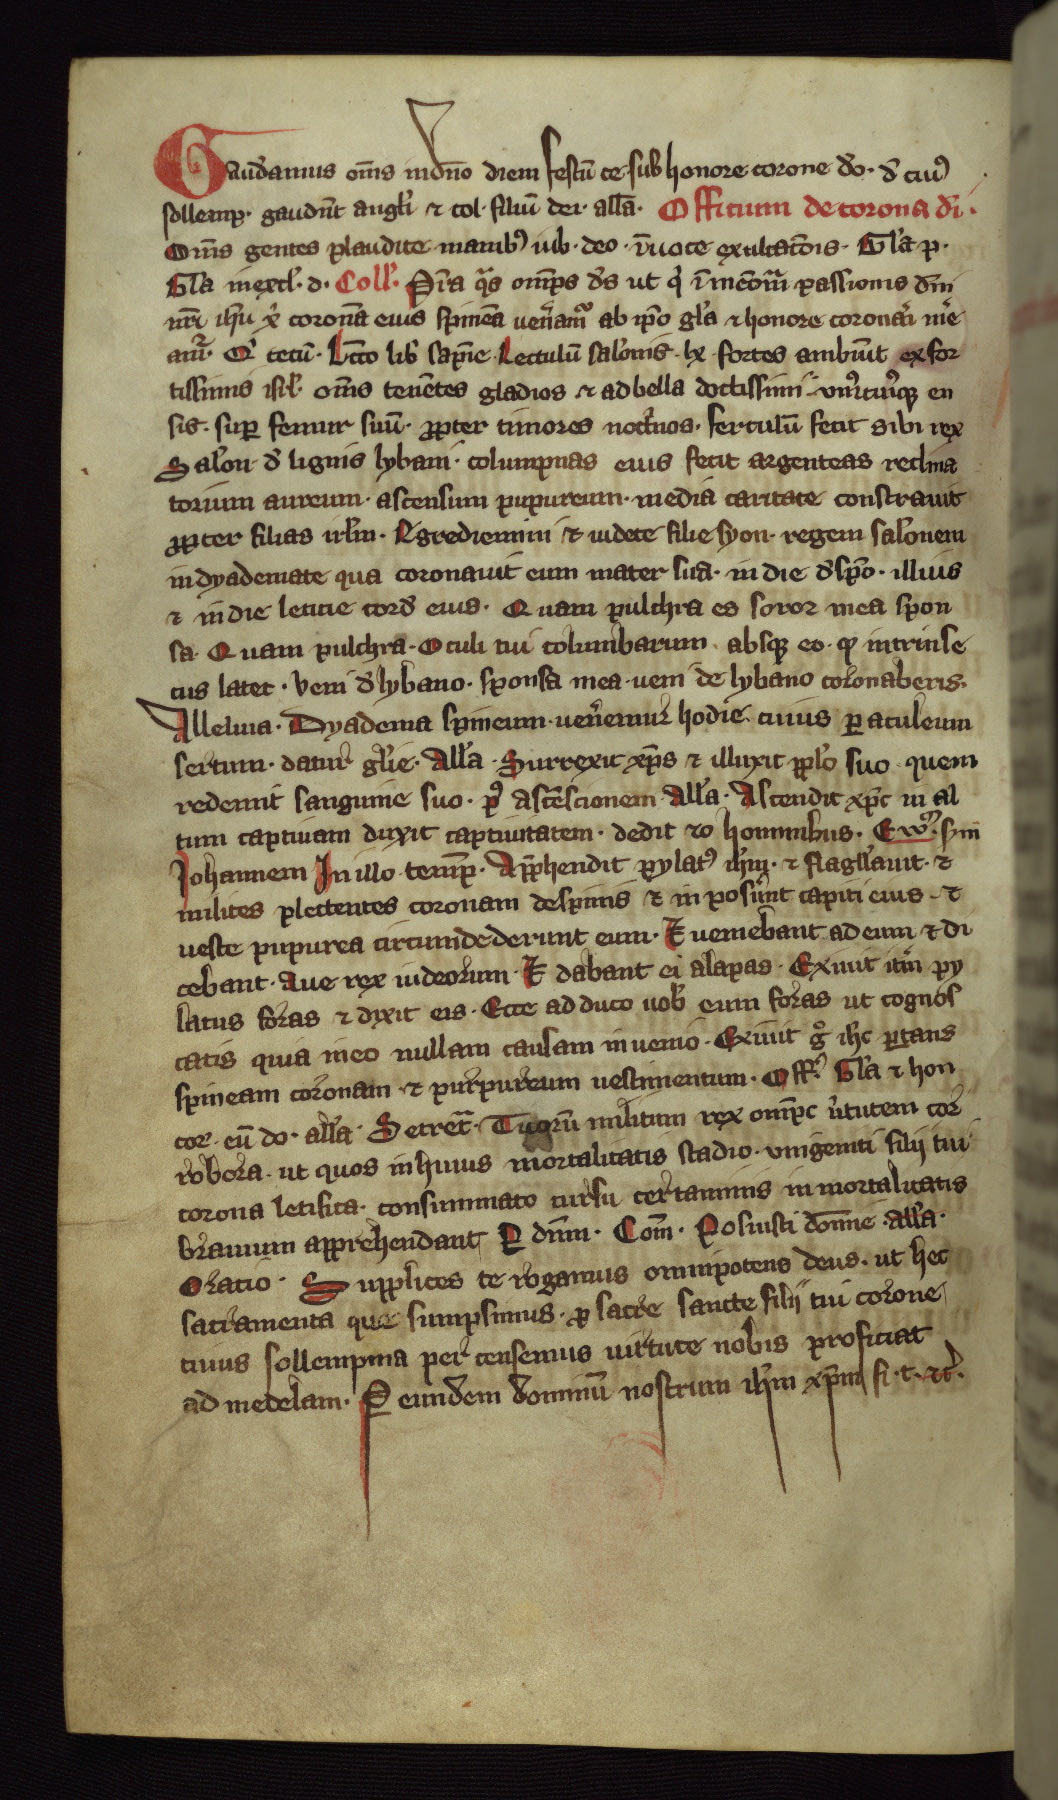 Gaudeamus om̅s in dn̅o diem festū ce· sub honore corone do· d̛ cui᷒
sollemp̱· gaudn̅t angli̛ ⁊ col· filiū dei· alla̅· Officium de corona dn̅i·
Om̅s gentes plaudite manib᷒ iub· deo · ī uoce exultatōis · Gl̛a p·
Gl̛a in excl̛· d· Coll̛· Pr̅a q̄s omp̄s ds̄ ut q̛ ī mēoīam passionis dn̅i
nr̅i ih̅u x̅ coronā eius spineā uen̛am᷒ ab ip̅o gl̛a ⁊ honore coronari me
am̛· Q̛ tecū· Lc̅o lib̛ sapn̅e· Lectulū salơnis · lx · fortes ambiūt ex for
tissimis isrl̛· om̅s tenētes gladios ⁊ ad bella doctissimi · vni᷒cuiusq̛ en
sis · sup̱ femur suū· p̱pter timores noct̛nos· ferculū fecit sibi rex
Salơn d̛ lignis lybani · columpnas eius fecit argenteas reclina
torium aureum · ascensum purpureum · media caritate constrauit
p̱pter filias irl̅m · Egredimini ⁊ uidete filie syon · regem salơnem
in dyademate qua coronauit eum mater sua · in die d̛spo̅· illius
⁊ in die leticie cord̛ eius · Quam pulchra es soror mea spon
sa · Quam pulchra · Oculi tui columbarum · absq̛ eo · q̛ intrinse
cus latet · Veni d̛ lybano · sponsa mea · ueni de lybano coronaberis·
Alleluia · Dyadema spineum · uen̛emur hodie · cuius p̱ aculeum
sertum · datur gl̛ie · All̛a · Surrexit xp̅s ⁊ illuxit pp̱lo suo quem
redemit sanguine suo · p᷒ ascēscionem · All̛a · Ascendit xp̅c in al
tum captiuam duxit captiuitatem · dedit do hominibus · Ew᷒· s̅m
Johannem In illo temp̱· App̱hendit pylat᷒ ih̅m · ⁊ flagll̛auit · ⁊
milites plectentes coronam de spinis ⁊ in posuer̅nt capiti eius · ⁊
ueste pupurea circumdederunt eum · Et ueniebant ad eum ⁊ di
cebant · Aue rex iudeorum · Et dabant ei alapas · Exiuit itm̅ py
latus foras ⁊ dixit eis · Ecce adduco uob̛ eum foras ut cognos
catis quia in eo nullam causam inuenio · Exiuit g̊ ih̅c p̱tans
spineam coronam ⁊ purpureum uestimentum · Off̛· Gl̛a ⁊ hon
core · eū do · all̛a · Secret̅· Tuorū militum rex omp̅c ūtutem cor
robora · ut quos in huius mortalitatis stadio · vnigeniti filij tui
corona letifica · consummato cursu certaminis inmortalitatis
brauium apprehendant P̱ dn̅m · Com̅· Posuisti domn̅e · all̛a·
Oratio · Supplices te rogamus omnipotens deus · ut hec
sacramenta que sumpsimus · p̱ sacre sancte filij tui corone
cuius sollempnia per censemus uirtute nobis proficiat
ad medelam · P̱ eundem dominū nostrum ih̅m xp̅m fi · t · ⁊c̛·